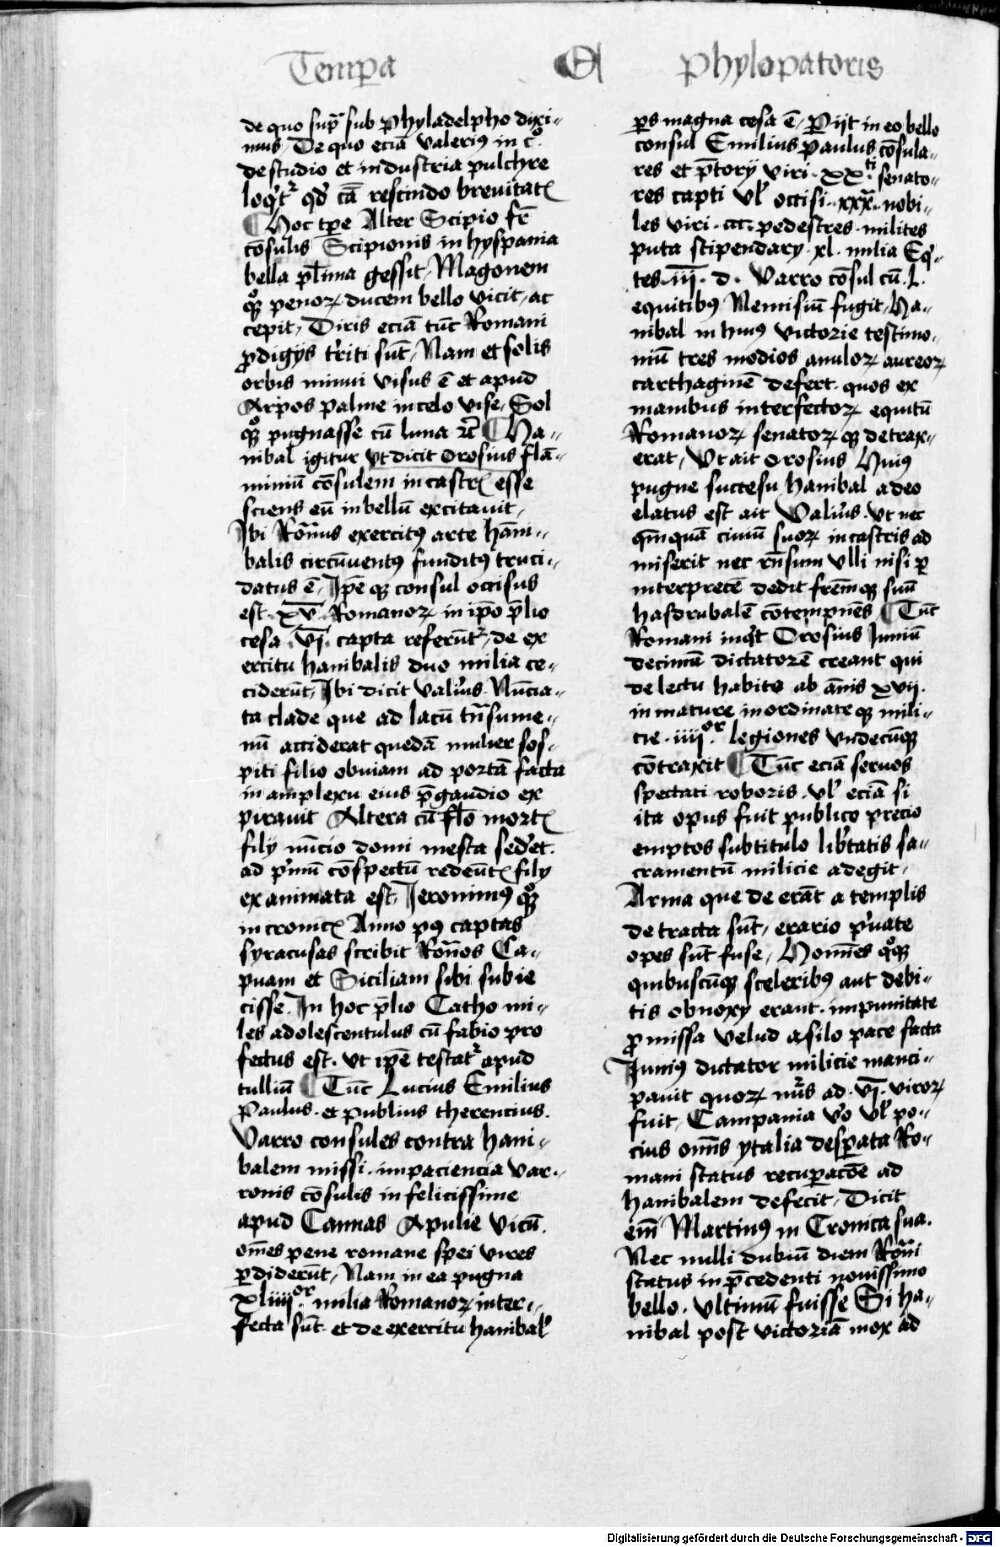 Tempa Ptholomei Phylopatoris
de quo supͣ sub Phyladelpho dixi-
mus, De quo eciā Valeriꝰ in c̊.
de studio et industria pulchre
loqͥtᷣ qd̛ cā rescindo breuitatꝭ
¶ Hoc tꝑe Alter Scipio fr̄
cōsulis Scipionis in hyspania
bella pl̄ima gessit, Magonem
qꝫ penoꝝ ducem bello vicit, ac
cepit, Diris eciā tūc Romani
ꝓdigijs t̛riti sūt, Nam et solis
orbis minui visus ē et apud
Arpos palme in celo vise, Sol
qꝫ pugnasse cū luna rc̄ ¶ Ha-
nibal igitur vt dicit Orosius flā-
miniū cōsulem in castrꝭ esse
sciens eū in bellū excitauit,
Ibi Rom̄us exercitꝰ arte hāni-
balis circūuentꝰ funditꝰ truci-
datus ē, Ip̄e qꝫ consul occisus
est. xv̄. Romanoꝝ in ip̄o p̄lio
cesa. vi̅. capta referūtᷣ, de ex
ercitu hanibalis duo milia ce-
ciderūt, Ibi dicit Valiꝰus. Nūcia-
ta clade que ad lacū tn̄sume-
nū acciderat quedā mulier sos-
piti filio obuiam ad portā facta
in amplexu eius p̄ gaudio ex
pirauit Altera cū fl̄o mortꝭ
filij nūcio domi mesta sed̛et.
ad p̛mū cōspectū redeūtꝭ filij
exanimata est, Ieronimꝰ qꝫ
in cronicꝭ Anno pꝰ captas
syracusas scribit Rōnos Ca-
puam et Siciliam sibi subie
cisse. In hoc p̄lio Catho mi-
les adolescentulus cū fabio pro
fectus est. vt ip̄e testatᷣ apud
tulliū ¶ Tūc Lucius Emilius
Paulus. et publius therencius.
Varro consules contra hani-
balem missi. impaciencia var-
ronis cōsulis infelicissime
apud Cannas Apulie vicū.
om̄es pene romane spei vires
ꝑdiderūt, Nam in ea pugna
xliiiiͦʳ. milia Romanoꝝ inter-
fecta sūt. et de exercitu hanibal̛
ꝑs magna cesa ē, Pijt in eo bello
consul Emilius Paulus cōsula-
res et p̄torij viri. xxᵗⁱ. senato-
res capti vl̛ occisi. xxx̄. nobi-
les viri. ccc. pedestres. milites
puta stipendarij. xl. milia Eq̛-
tes. iii̅. d. Varro cōsul cū. l.
equitibꝰ Nemisiū fugit, Ha-
nibal in huiꝰ victorie testimo-
niū tres modios anuloꝝ aureoꝝ
carthaginē defert. quos ex
manibus interfectoꝝ equitū
Romanoꝝ senatoꝝ qꝫ detrax-
erat, Vt ait Orosius Huiꝰ
pugne succesu hanibal adeo
elatus est ait Valiꝰus. vt nec
qm̄quā ciuiū suoꝝ in castris ad
miserit nec rn̄sum vlli nisi ꝑ
interpretē dedit frēmqꝫ suū
hasdrubalē cōtempnēs ¶ Tūc
Romani inqͥt Orosius Iuniū
decimū dictatorē creant qui
delectu habito ab ānis xvij.
inmature inordinate qꝫ mili-
cie. iiiiͦʳ. legiones vndecūqꝫ
cōtraxit ¶ Tūc eciā seruos
spectati roboris. vl̛ eciā si
ita opus fuit publico precio
emptos subtitulo lib̛tatis sa-
cramentū milicie adegit,
Arma que de erāt a templis
detracta sūt, erario p̛uate
opes sūt fuse, Homīes qꝫ
quibuscūqꝫ sceleribꝰ aut debi-
tis obnoxij erant. impunitate
ꝓmissa velud asilo pace facta
Iuniꝰ dictator milicie manci-
pauit quoꝝ nūs ad. vi̅. viroꝝ
fuit, Campania v̛o vl̛ po-
cius om̄is ytalia desꝑata Ro-
mani status recuꝑacōe ad
hanibalem defecit, Dicit
em̄ Martinꝰ in Cronica sua.
Nec nulli dubiū diem Rom̄i
status in p̄cedenti nouissimo
bello. vltimū fuisse Si ha-
nibal post victoriā mox ad
Digitalisierung gefördert durch die Deutsche Forschungsgemeinschaft - DFG